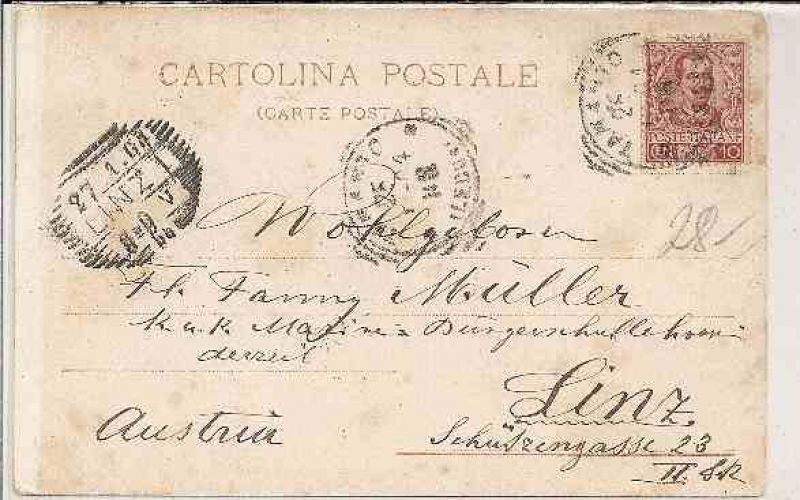 CARTOLINA POSTALE
(CARTE POSTALE)
POSTE ITALIANE
10
27.1.
LINZ
Wohlgeboren
Frl. Fanny Müller
k. u. k. Marine = Bürgerschullehrerin
derzeit
Linz
Austria
Schützengasse 23
II. Stk
28